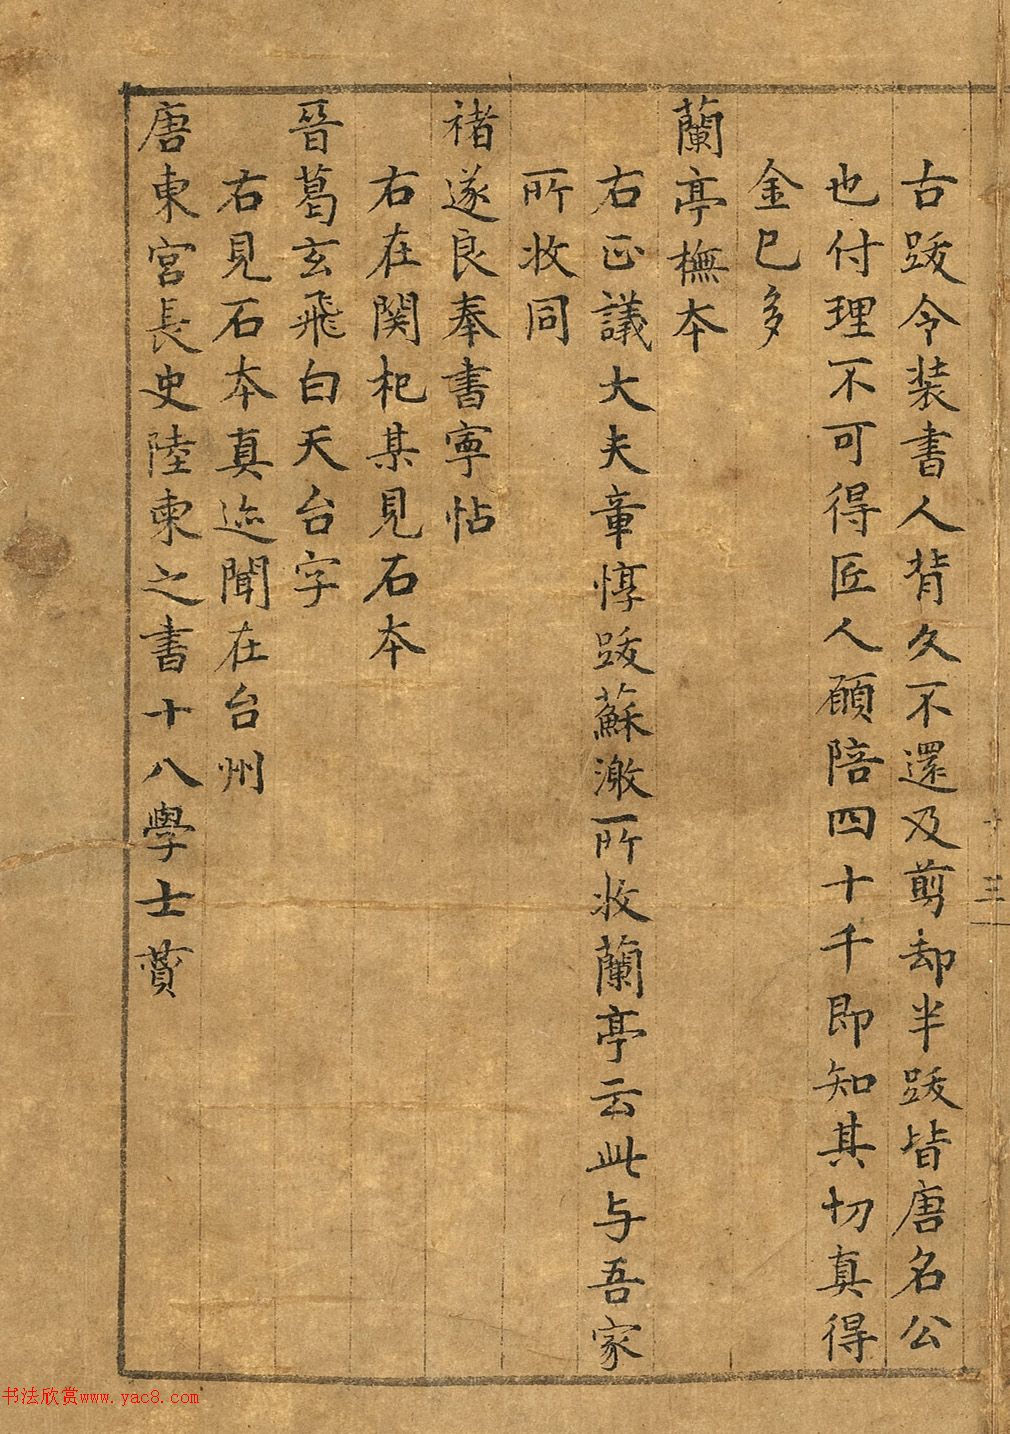 古跋令装書人背久不還及剪却半跋皆唐名公
也付理不可得匠人願陪四十千即知其切真得
金已多
蘭亭橅本
右正議大夫章惇跋蘇澈所收蘭亭云此与吾家
所收同
褚遂良奉書寧帖
右在関杞某見石本
晉葛玄飛白天台字
右見石本真迹聞在台州
唐東宮長史陸柬之書十八學士賛
十三
书法欣赏www.yac8.com